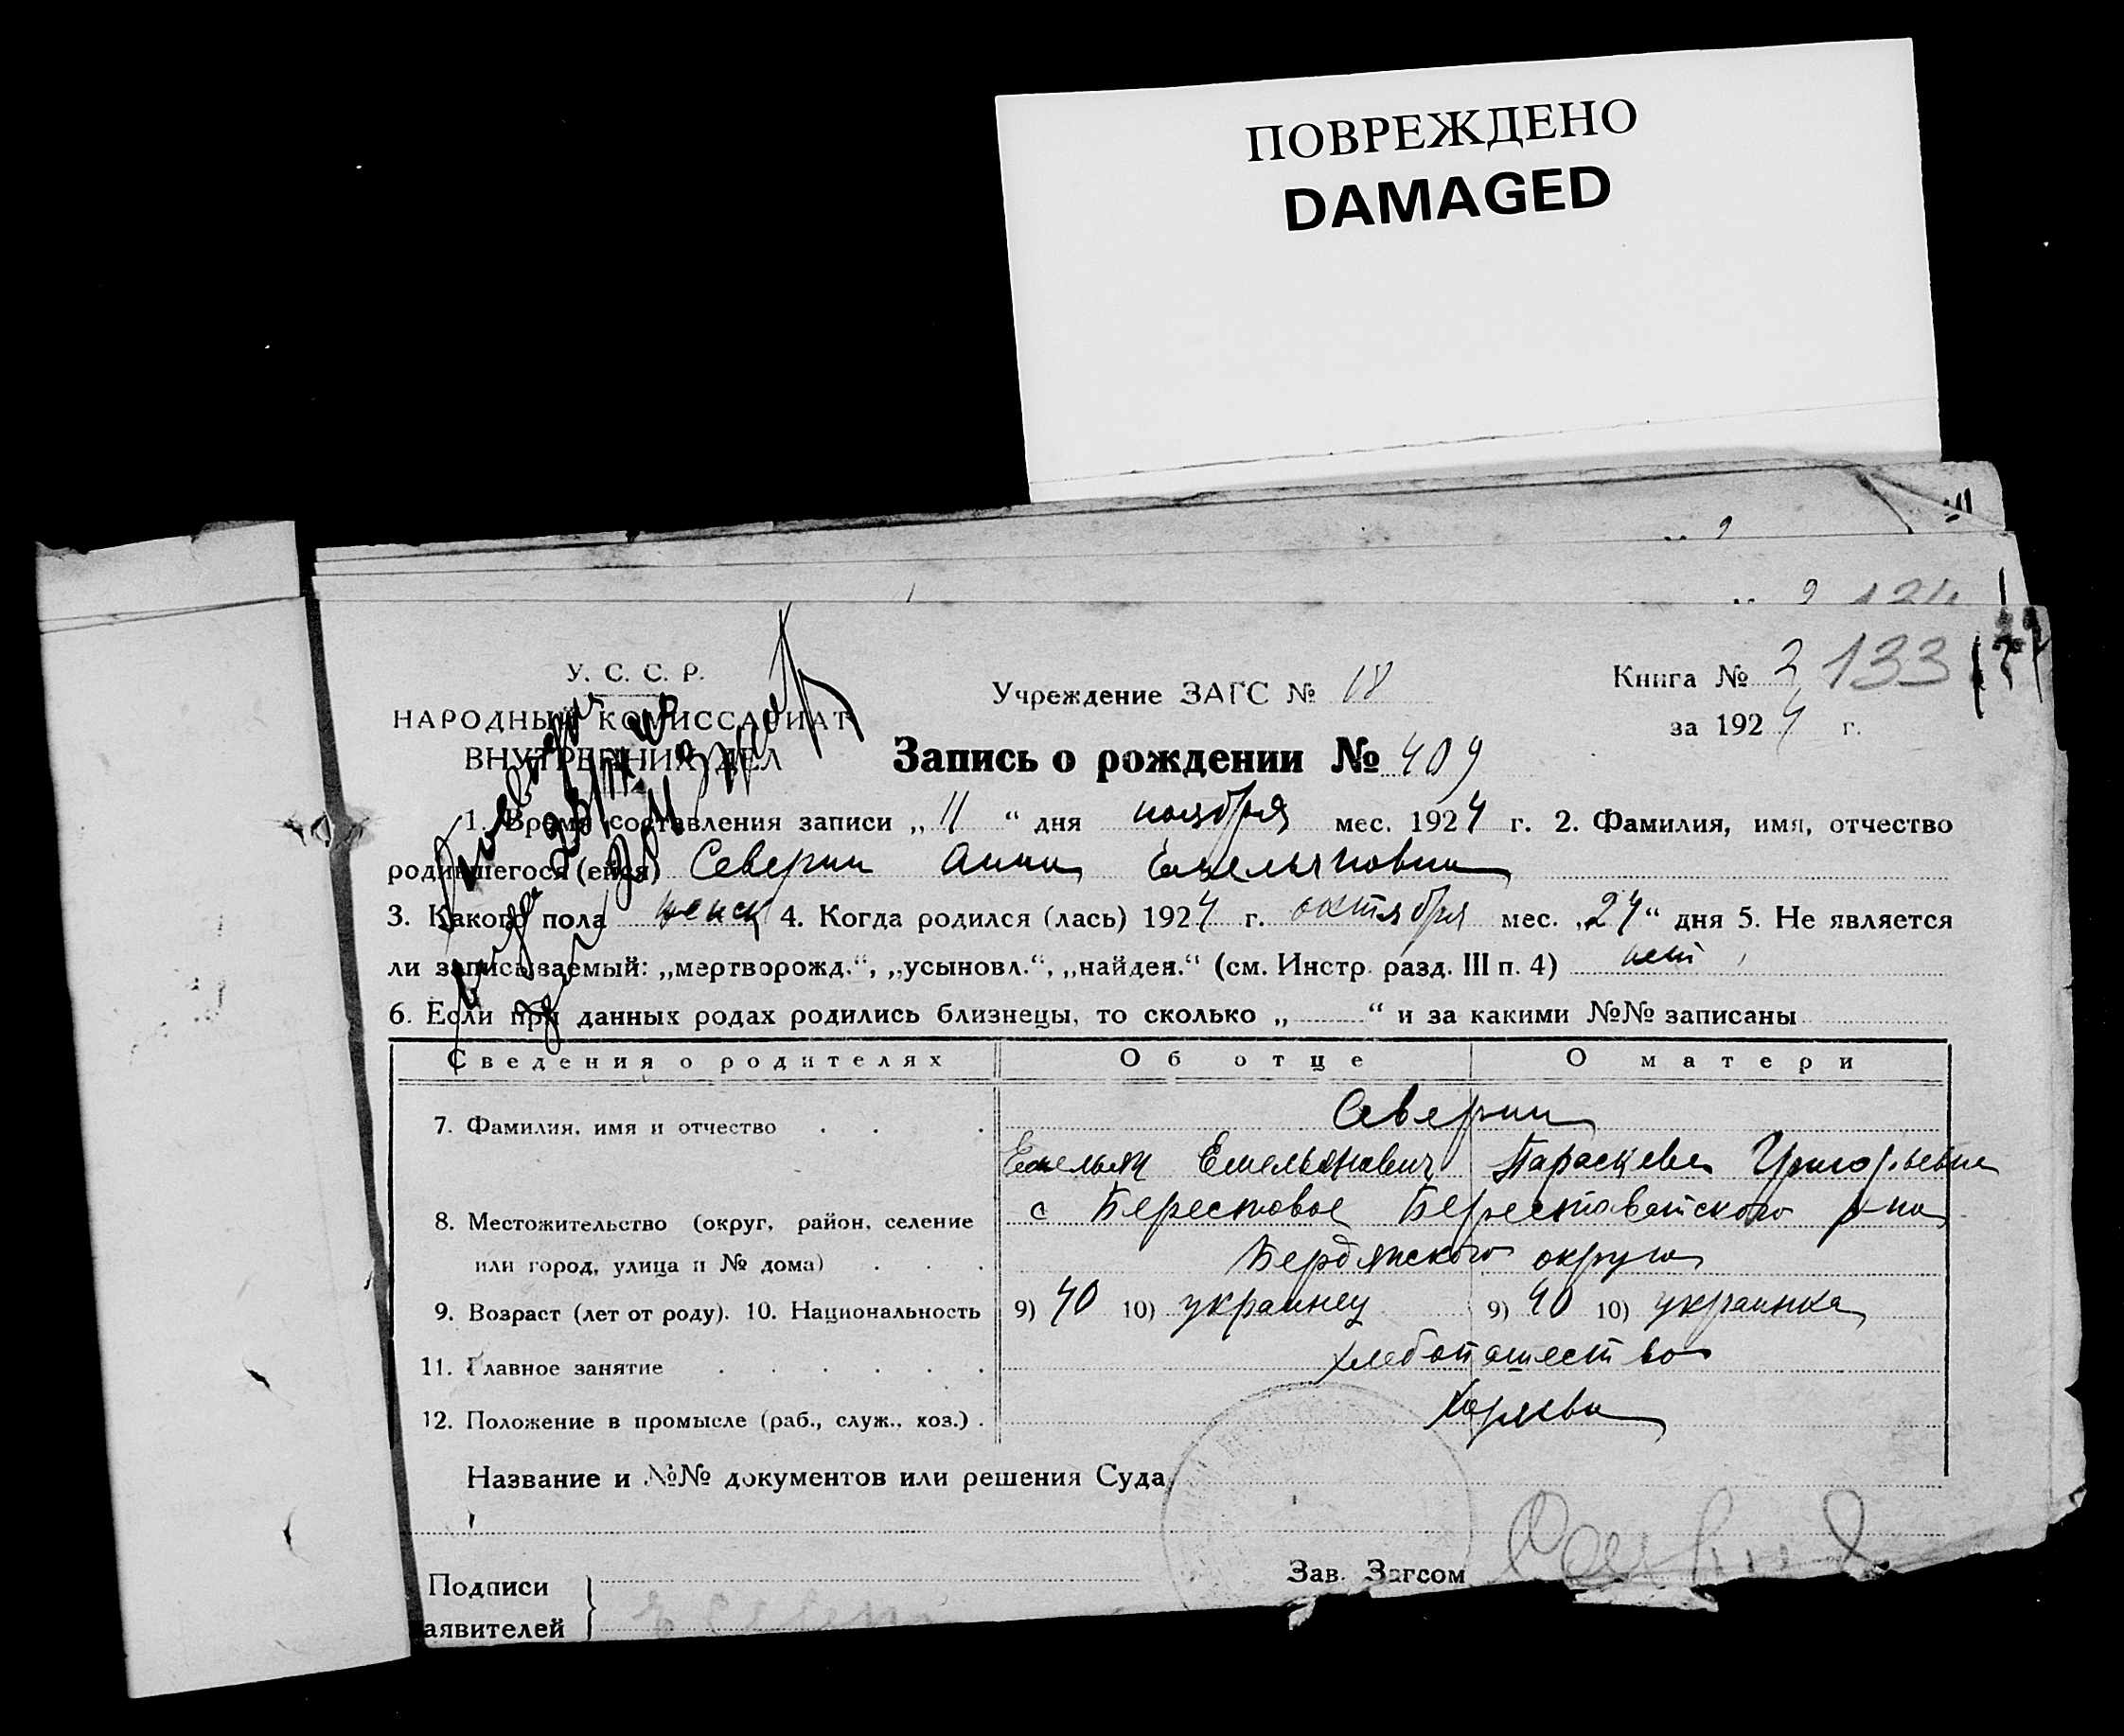 ПОВРЕЖДЕНО
DAMAGED
У. С. С. Р.
НАРОДНЫЙ КОМИССАРИАТ
ВНУТРЕННИХ ДЕЛ
Учреждение ЗАГС № 18
Книга № 2 133
за 1924 г.
Запись о рождении № 409
1. Время составления записи „11“ дня ноября мес. 1924 г. 2. Фамилия, имя, отчество
родившегося (ейся) Северин Анна Емельяновна
3. Какого пола женск 4. Когда родился (лась) 1924 г. октября мес. „24“ дня 5. Не является
ли записываемый: „мертворожд.“, „усыновл.“, „найден.“ (см. Инстр. разд. III п. 4) нет
6. Если при данных родах родились близнецы, то сколько „ “ и за какими №№ записаны
Сведения о родителях Об отце О матери
7. Фамилия, имя и отчество Северин
Емельян Емельянович Параскева Григорьевна
8. Местожительство (округ, район, селение с Берестовое Берестовотского р-на
или город, улица и № дома) Бердянского округа
9. Возраст (лет от роду). 10. Национальность 9) 40 10) украинец 9) 40 10) украинка
11. Главное занятие хлебопашество
12. Положение в промысле (раб., служ., хоз.) Хозяева
Название и №№ документов или решения Суда
Зав. Загсом
Подписи
аявителей